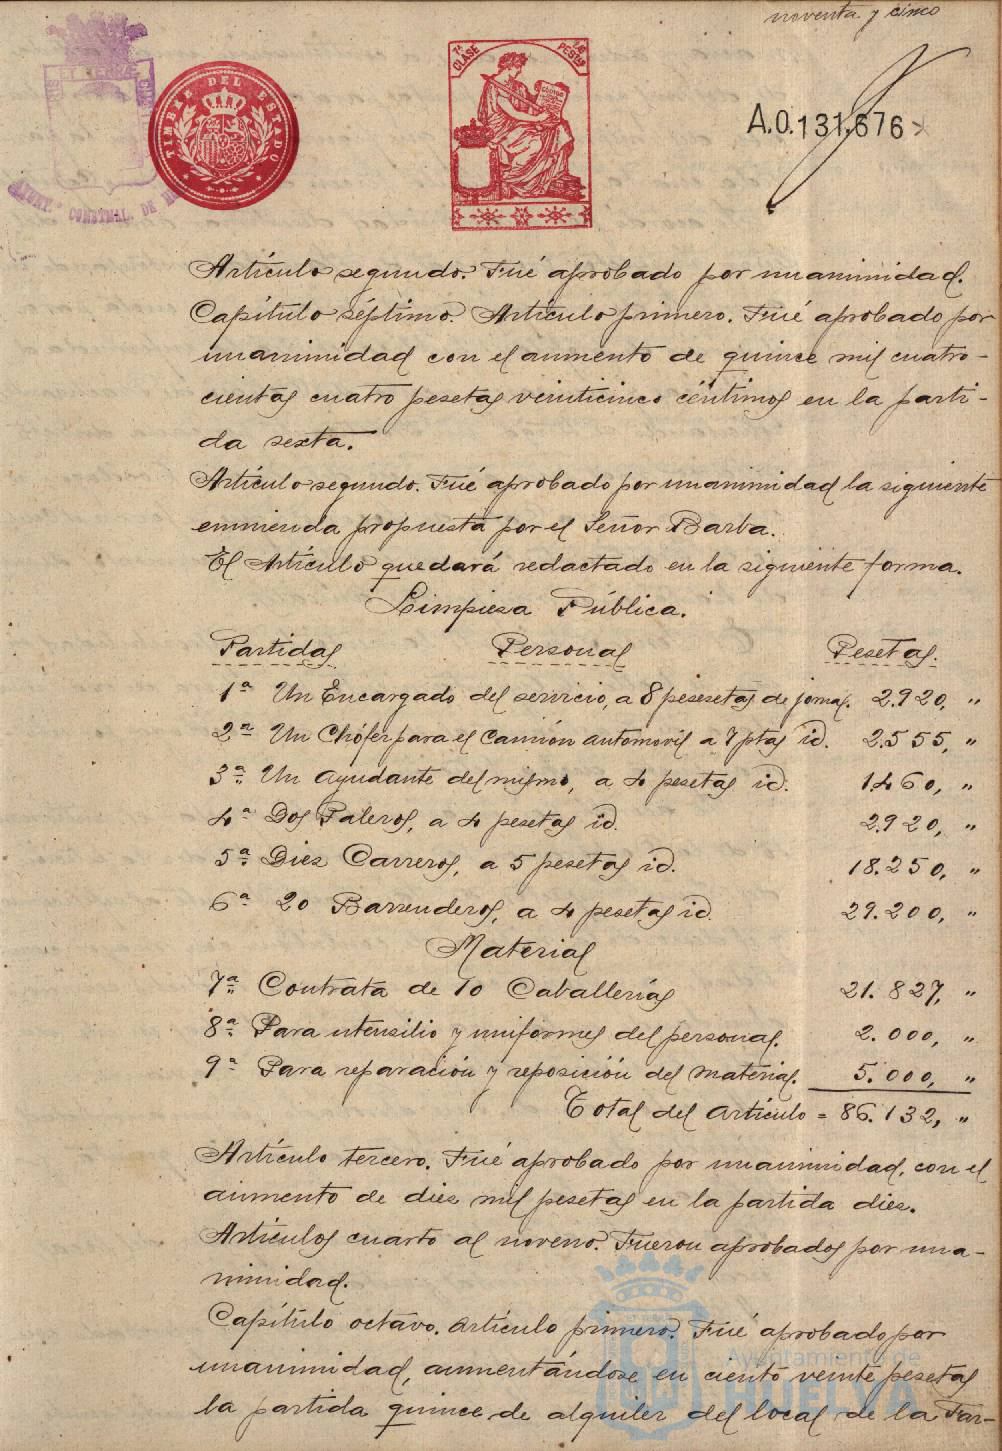 noventa y cinco
TIMBRE DEL ESTADO
7ª CLASE
PESETAS
A.0.131.676
AYUNT.º CONSTNAL. DE
Artículo segundo. Fué aprobado por unanimidad.
Capítulo séptimo. Artículo primero. Fué aprobado por
unanimidad con el aumento de quince mil cuatro-
cientas cuatro pesetas veinticinco céntimos en la parti-
da sexta.
Artículo segundo. Fué aprobado por unanimidad la siguiente
enmienda propuesta por el Señor Barba.
El Artículo quedará redactado en la siguiente forma.
Limpieza Pública.
Partidas Personal Pesetas.
1ª Un Encargado del servicio, a 8 pesesetas de jornal. 2.920, "
2ª Un Chófer para el camión automovil a 7 ptas id. 2.555, "
3ª Un ayudante del mismo, a 4 pesetas id. 1.460, "
4ª Dos Paleros, a 4 pesetas id. 2.920, "
5ª Diez Carreros, a 5 pesetas id. 18.250, "
6ª 20 Barrenderos, a 4 pesetas id. 29.200, "
Material
7ª Contrata de 10 Caballerías 21.827, "
8ª Para utensilio y uniformes del personal. 2.000, "
9ª Para reparación y reposición del material. 5.000, "
Total del artículo = 86.132, "
Artículo tercero. Fué aprobado por unanimidad, con el
aumento de diez mil pesetas en la partida diez.
Artículos cuarto al noveno. Fueron aprobados por una-
nimidad.
Capítulo octavo. Artículo primero. Fué aprobado por
unanimidad, aumentándose en ciento veinte pesetas
la partida quince de alquiler del local de la Far-
Ayuntamiento de
HUELVA